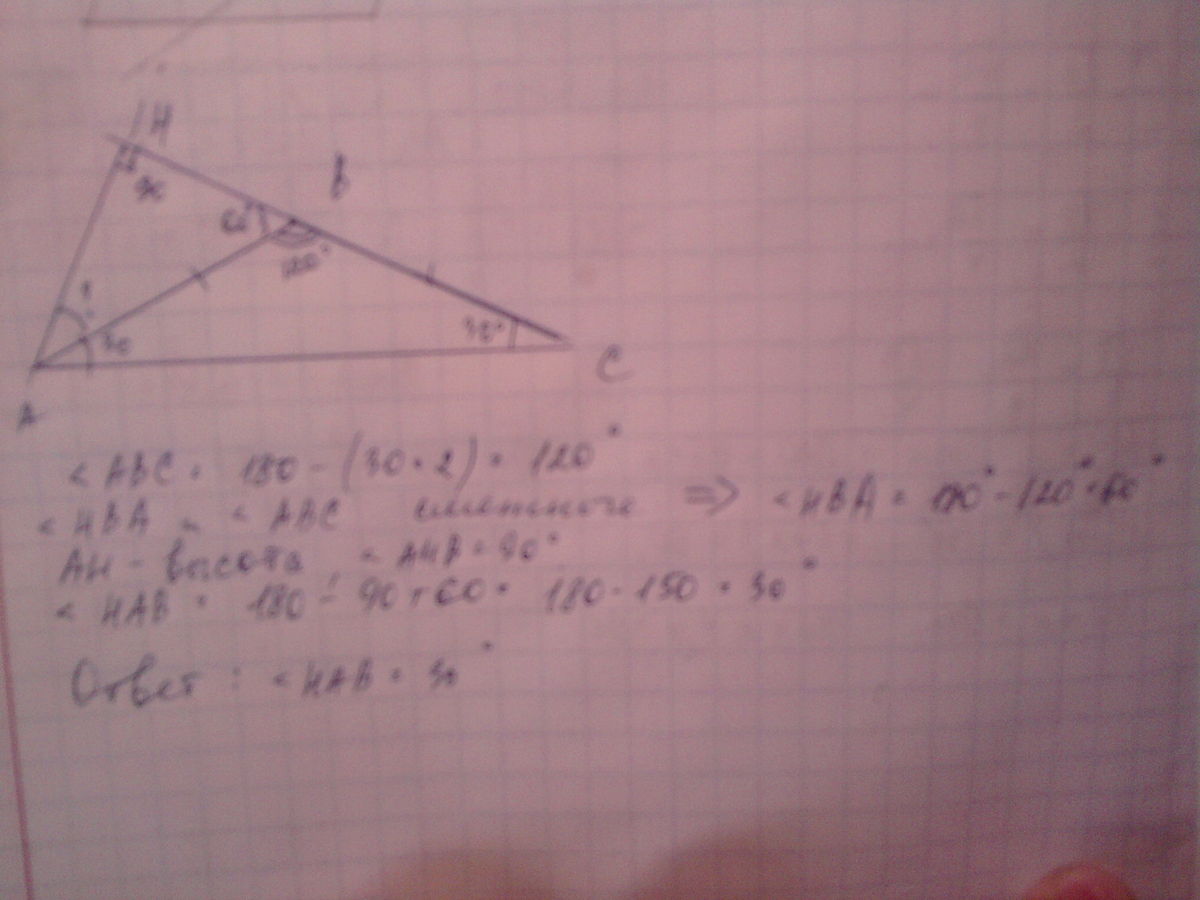 H
B
90
60°
120°
?
30
30°
C
A
< ABC = 180 - (30·2) = 120°
< HBA и < ABC смежные => < HBA = 180° - 120° = 60°
AH - высота < AHB = 90°
< HAB = 180 - 90+60 = 180 - 150 = 30°
Ответ : < HAB = 30°